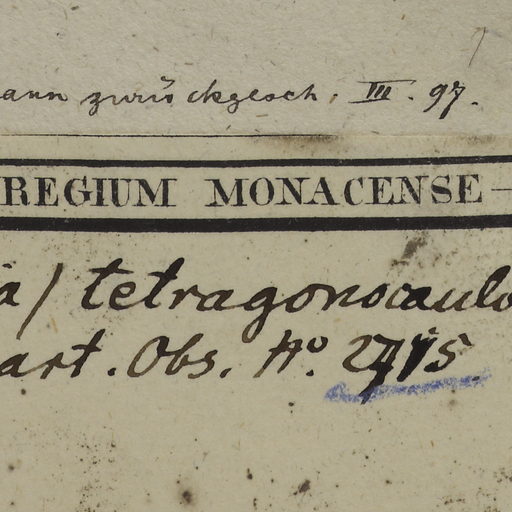 ann zurückgesch. III. 97.
REGIUM MONACENSE —
a / tetragonocaulo
art. Obs. No. 2715